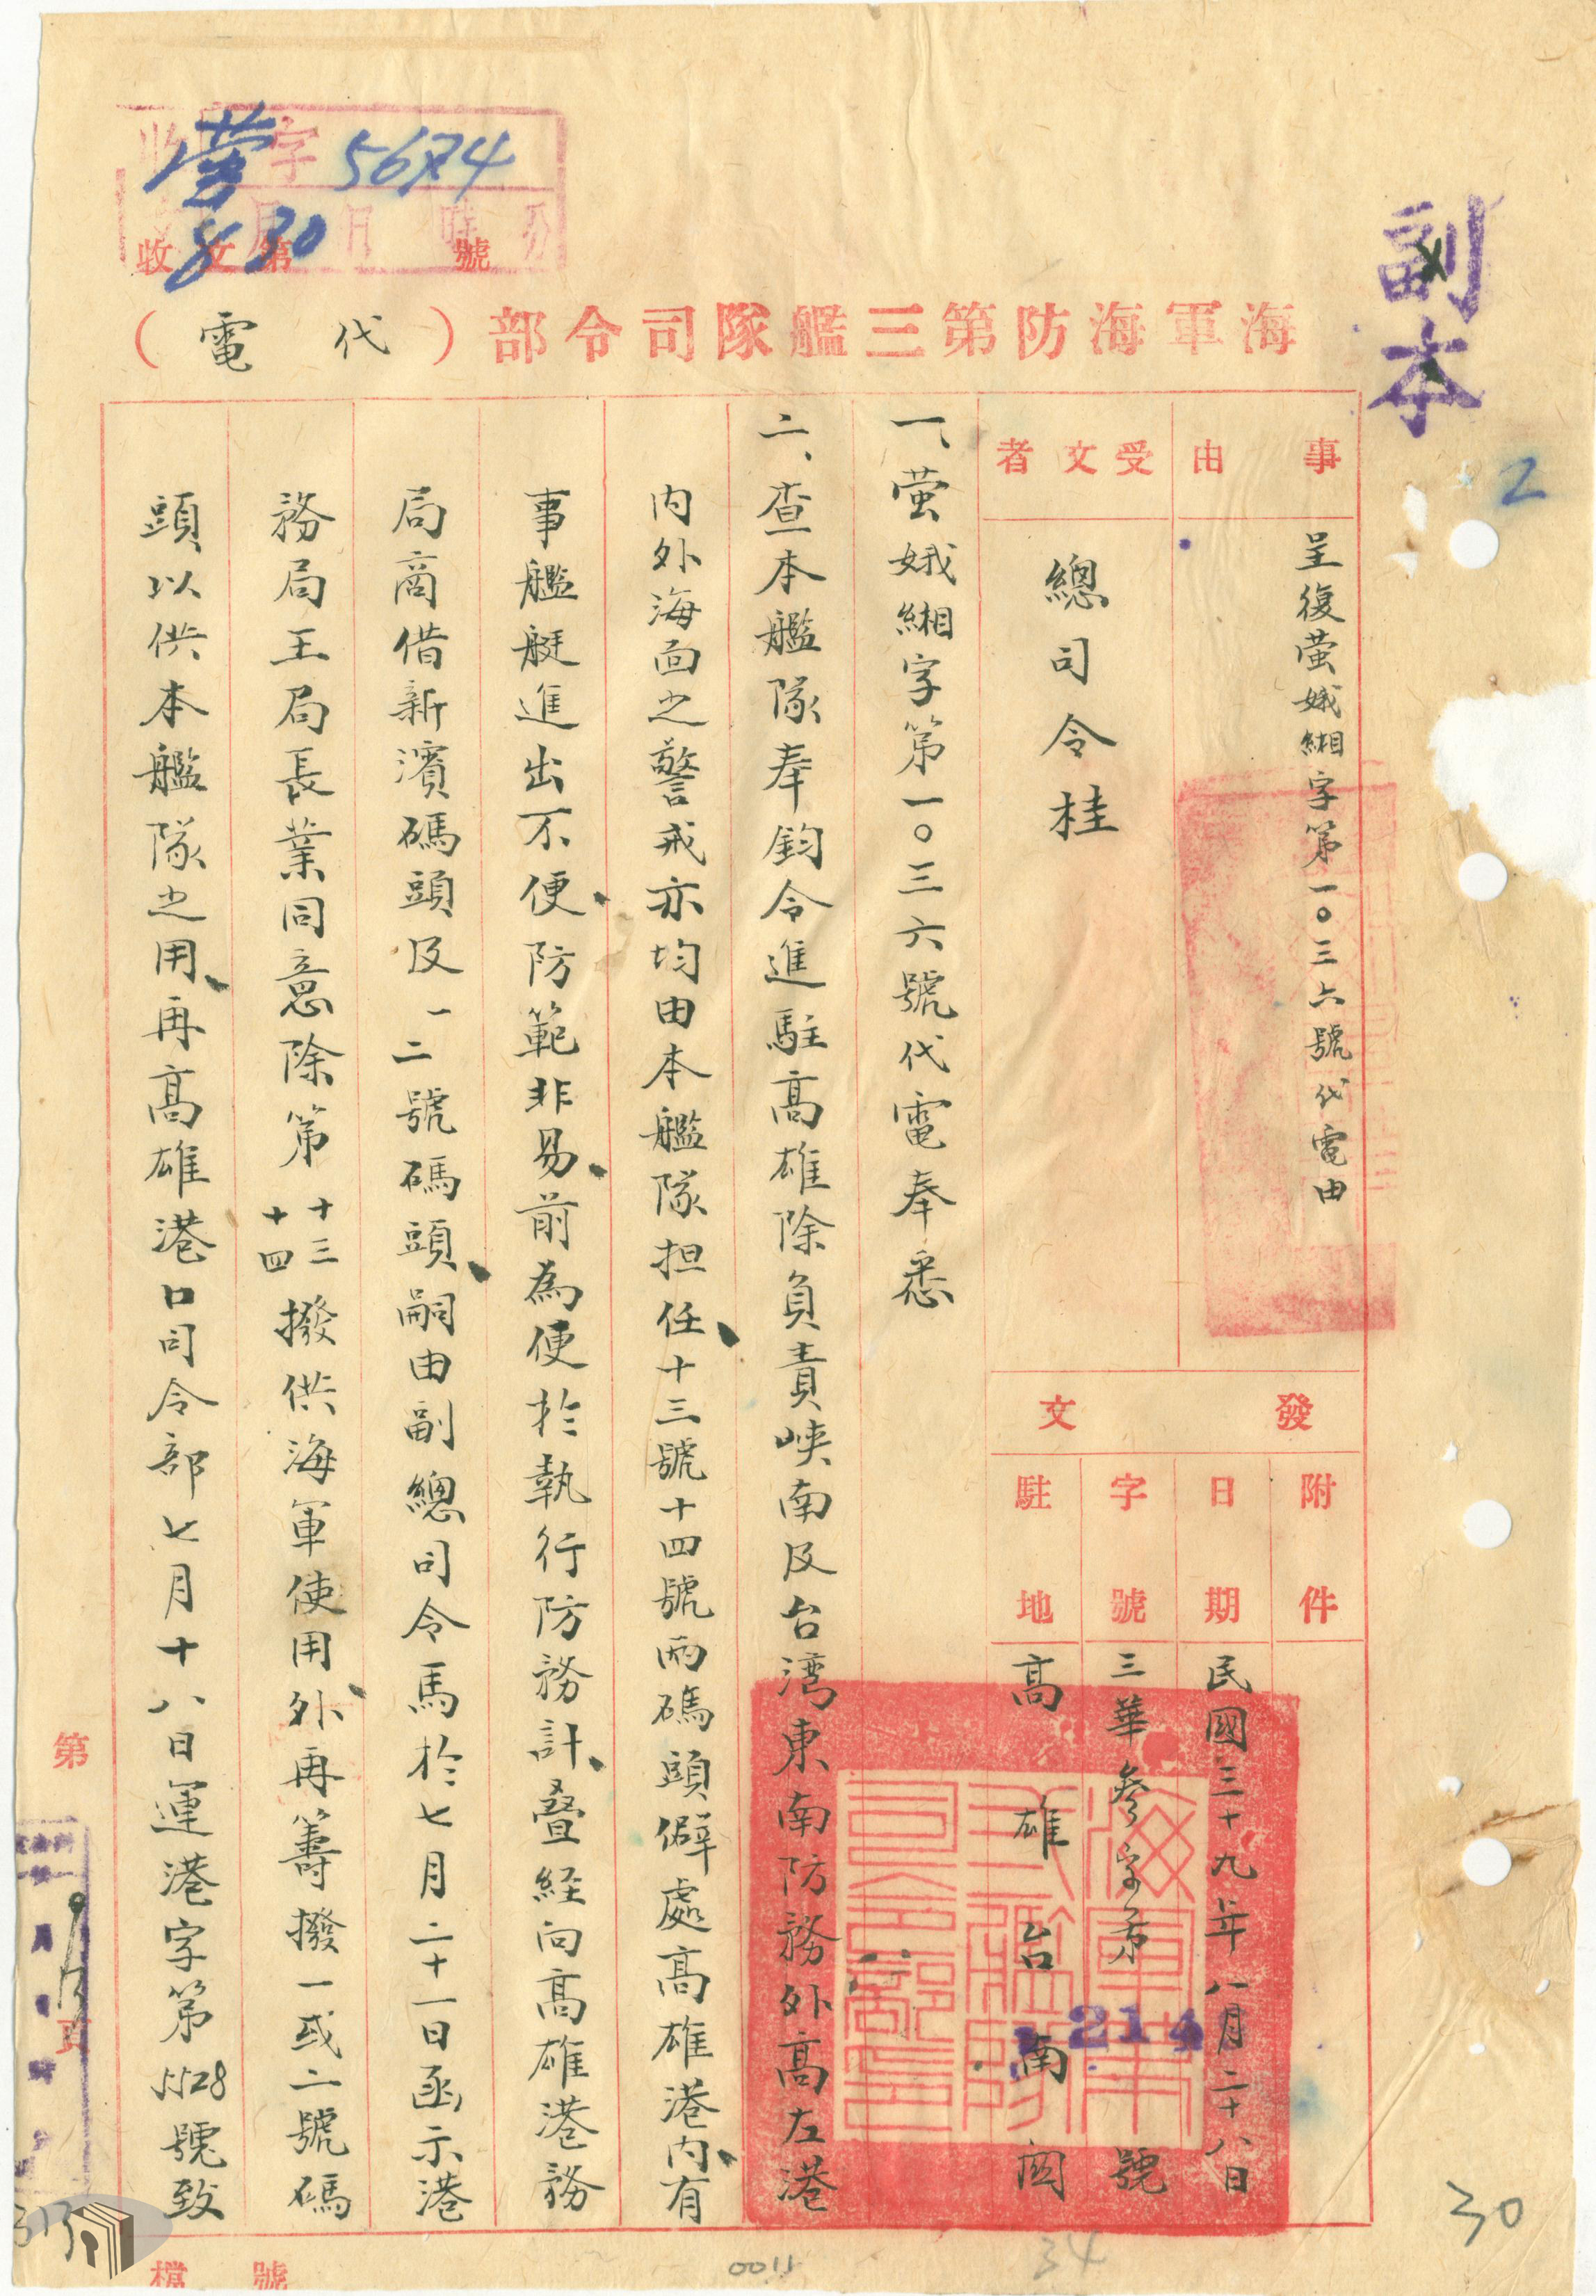 副本
字 5674
8 30
收文第 號
海軍海防第三艦隊司令部（代電）
事由
呈復萤娥緗字第一〇三六號代電由
受文者
總司令桂
發文
附件
日期
民國三十九年八月二十八日
字號
三華參字第 214 號
駐地
高雄台南
一、萤娥緗字第一〇三六號代電奉悉
二、查本艦隊奉鈞令進駐高雄除負責峽南及台湾東南防務外高左港
內外海面之警戒亦均由本艦隊担任十三號十四號両碼頭僻處高雄港內有
事艦艇進出不便防範非易前為便於執行防務計疊経向高雄港務
局商借新濱碼頭及一二號碼頭嗣由副總司令馬於七月二十一日函示港
務局王局長業同意除第十三十四撥供海軍使用外再籌撥一或二號碼
頭以供本艦隊之用再高雄港口司令部七月十八日運港字第5528號致
第
頁
檔號
2
30
34
0011
313